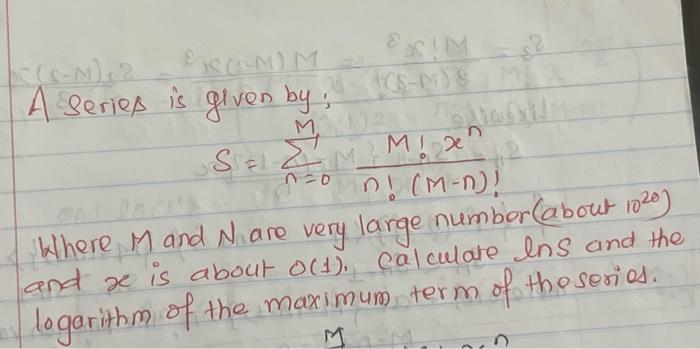 A series is given by;
S = M∑n=0 M! xⁿ / n! (M-n)!
Where M and N are very large number (about 10²⁰)
and x is about O(1). Calculate lnS and the
logarithm of the maximum term of the series.
M n